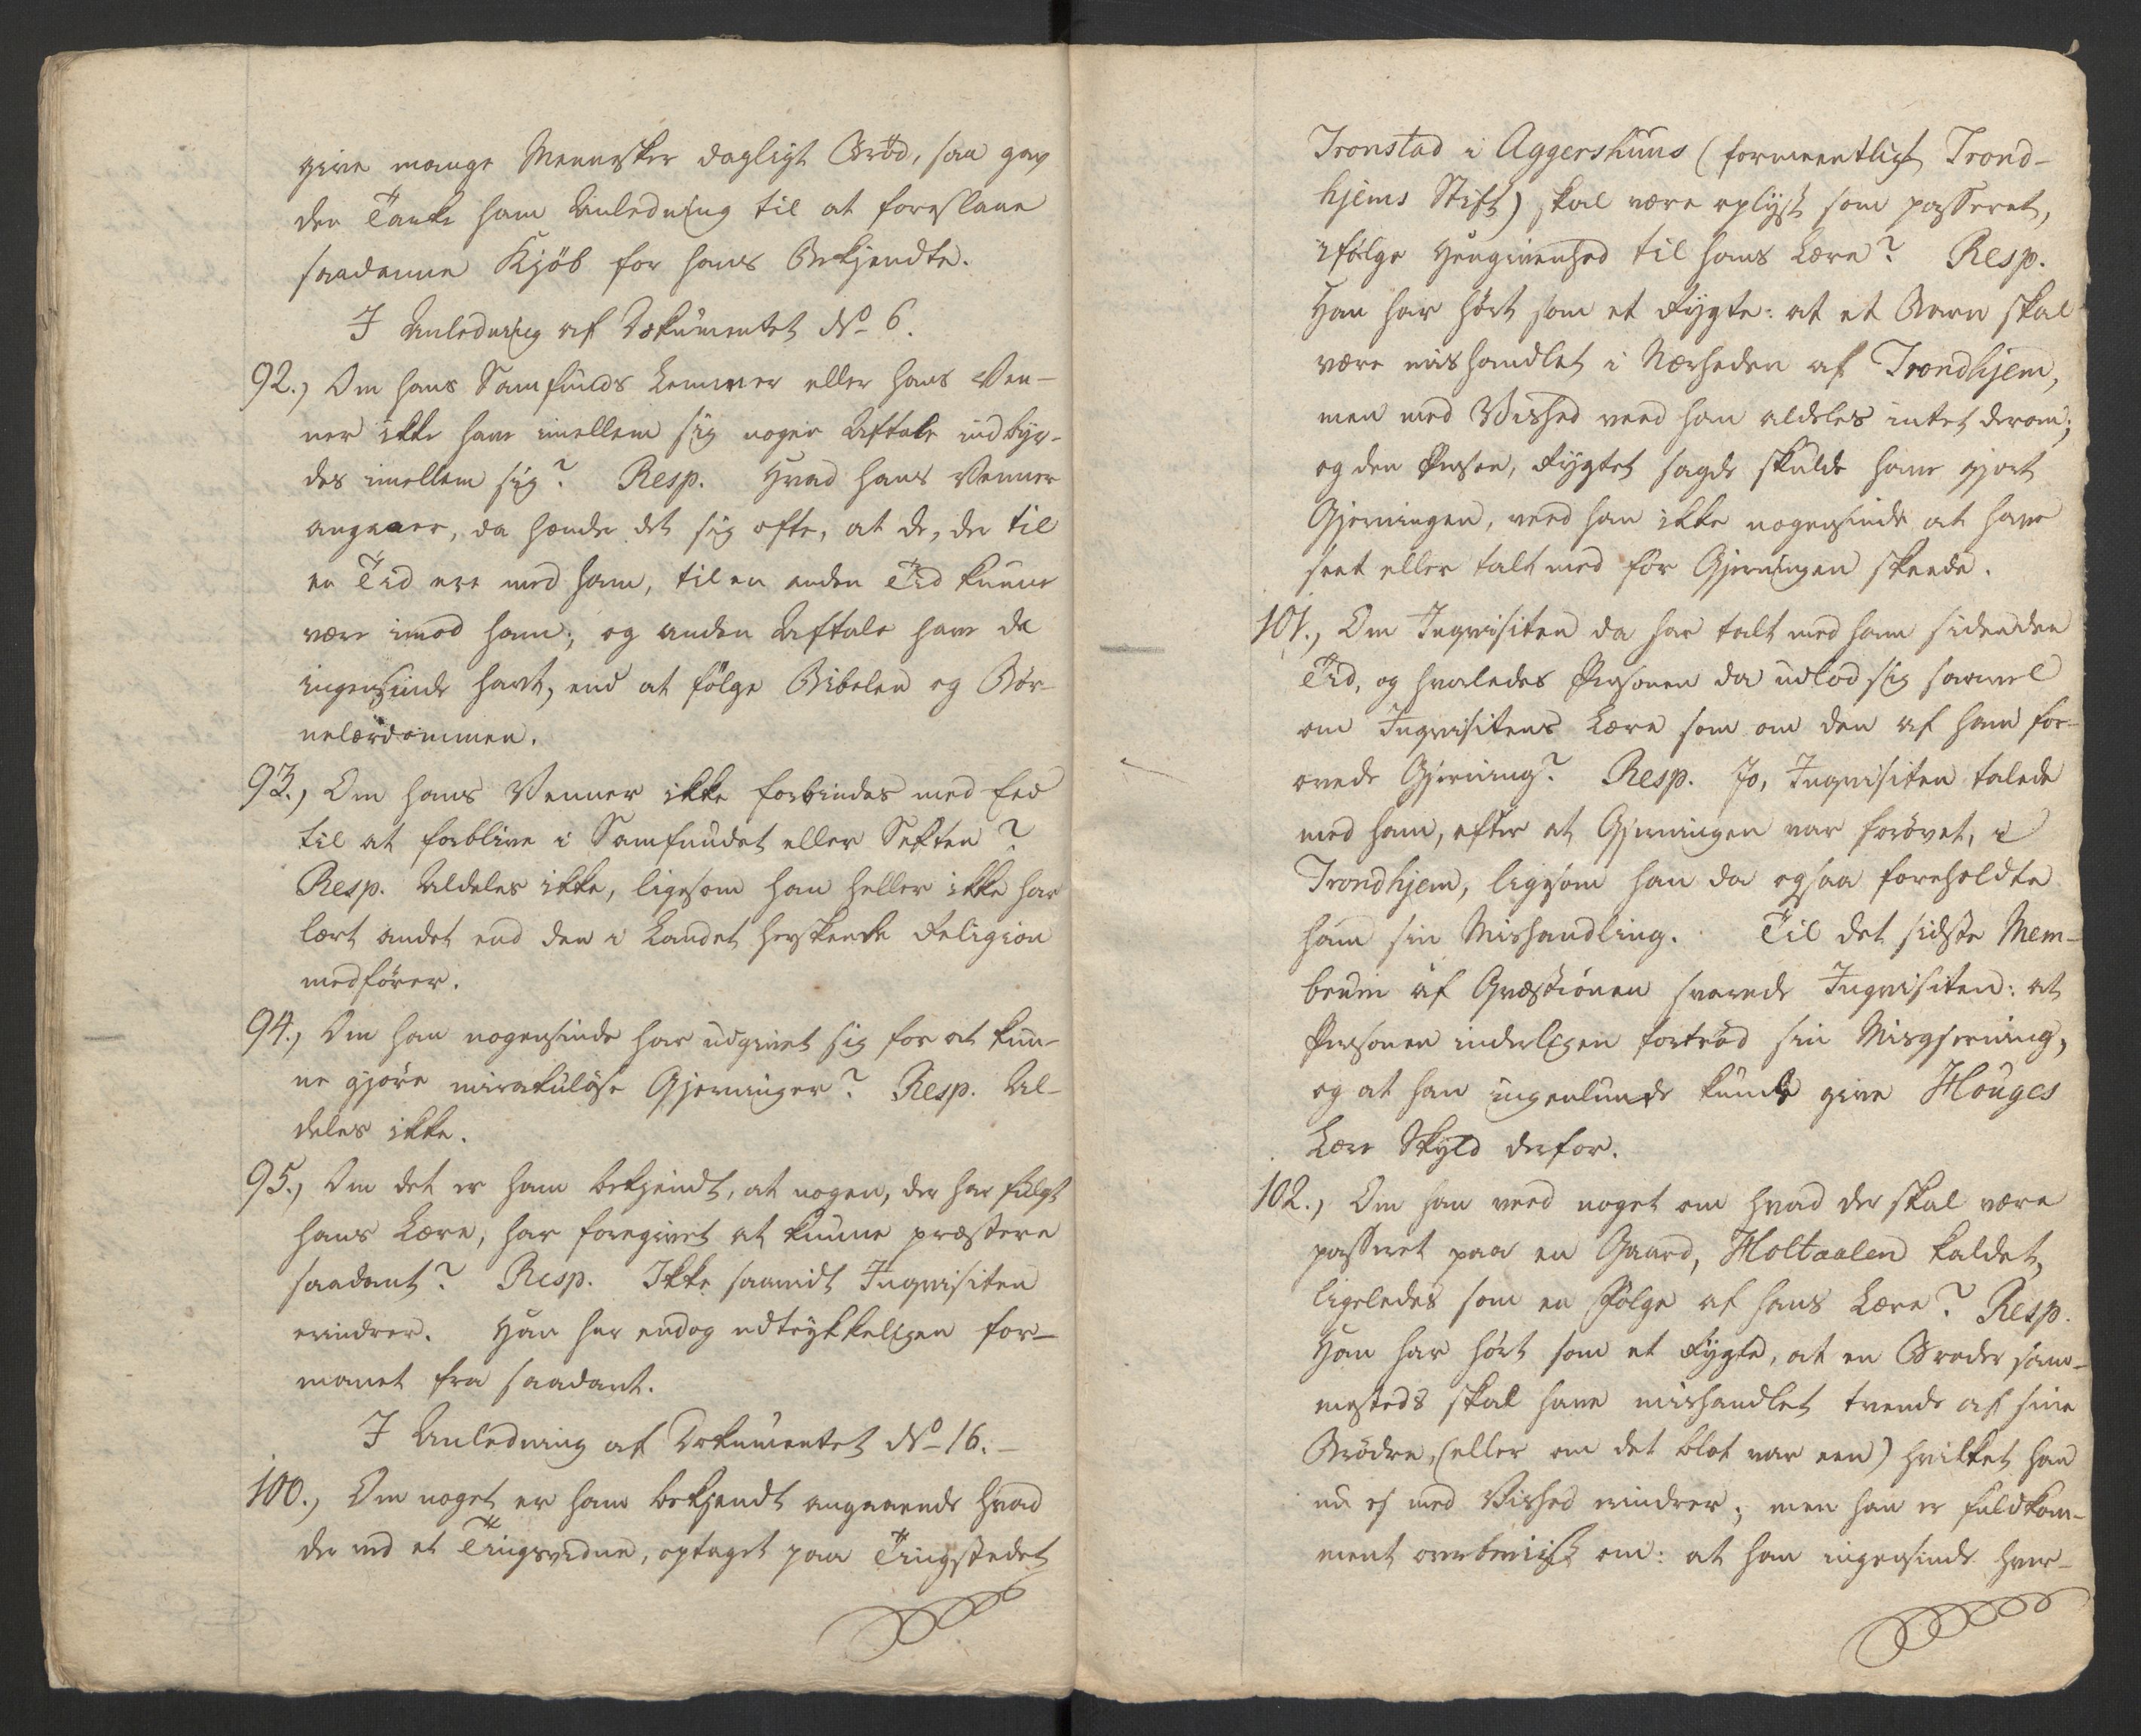 give mange Mennesker dagligt Brød, saa gav
den Tanke ham Anledning til at foreslaae
saadanne Kjöb for hans Bekjendte.
I Anledning af Dokumentet No 6.
92., Om hans Samfunds Lemmer eller hans Ven-
ner ikke have imellem sig nogen Aftale indbyr-
des imellem sig? Resp. Hvad hans Venner
angaaer, da hænder det sig ofte, at de, der til
en Tid ere med ham, til en anden Tid kunne
være imod ham; og anden Aftale have de
ingensinde havt, end at følge Bibelen og Bör-
nelærdommen.
93., Om hans Venner ikke forbindes med Eed
til at forblive i Samfundet eller Sekten?
Resp. Aldeles ikke, ligesom han heller ikke har
lært andet end den i Landet herskende Religion
medfører.
94., Om han nogensinde har udgivet sig for at kun-
ne gjøre mirakuløse Gjerninger? Resp. Al-
deles ikke.
95., Om det er ham bekjendt, at nogen, der har fulgt
hans Lære, har foregivet at kunne præstere
saadant? Resp. Ikke saavidt Inqvisiten
erindrer. Han har endog udtrykkeligen for-
manet fra saadant.
I Anledning af Dokumentet No 16.
100., Om noget er ham bekjendt angaaende hvad
der ved et Tingsvidne, optaget paa Tingstedet
Tronstad i Aggershuus (formeentligt Trond-
hjems Stift) skal være oplyst som passeret,
ifølge Hengivenhed til hans Lære? Resp.
Han har hört som et Rygte: at et Barn skal
være mishandlet i Nærheden af Trondhjem,
men med Vished veed han aldeles intet derom;
og den Person, Rygtet sagde skulde have gjort
Gjerningen, veed han ikke nogensinde at have
seet eller talt med för Gjerningen skeede.
101., Om Inqvisiten da har talt med ham siden den
Tid, og hvorledes Personen da udlod sig saavel
om Inqvisitens Lære som om den af ham for-
øvede Gjerning? Resp. Jo, Inqvisiten talede
med ham, efter at Gjerningen var forövet, i
Trondhjem, ligesom han da ogsaa foreholdte
ham sin Mishandling. Til det sidste Mem-
brum af Qvæstionen svarede Inqvisiten: at
Personen inderligen fortrød sin Misgjerning,
og at han ingenlunde kunde give Houges
Lære Skyld derfor.
102., Om han veed noget om hvad der skal være
passeret paa en Gaard, Holtaalen kaldet,
ligeledes som en Følge af hans Lære? Resp.
Han har hört som et Rygte, at en Broder sam-
mesteds skal have mishandlet tvende af sine
Brödre, (eller om det blot var een) hvilket han
nu ej med Vished erindrer; men han er fuldkom-
ment overbeviist om: at han ingensinde hver-